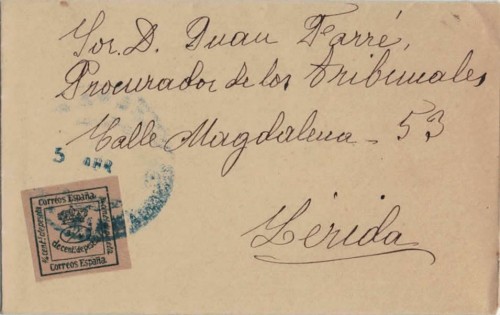 Sor. D. Juan Farré,
Procurador de los Tribunales
Calle Magdalena - 53
5 ABR
Correos España.
de cent. de peseta
Correos España.
Lérida